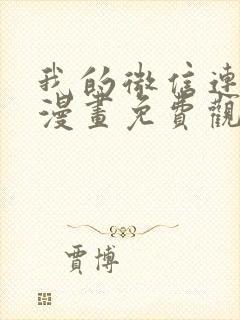 我的微信連
漫畫免費觀
賈博